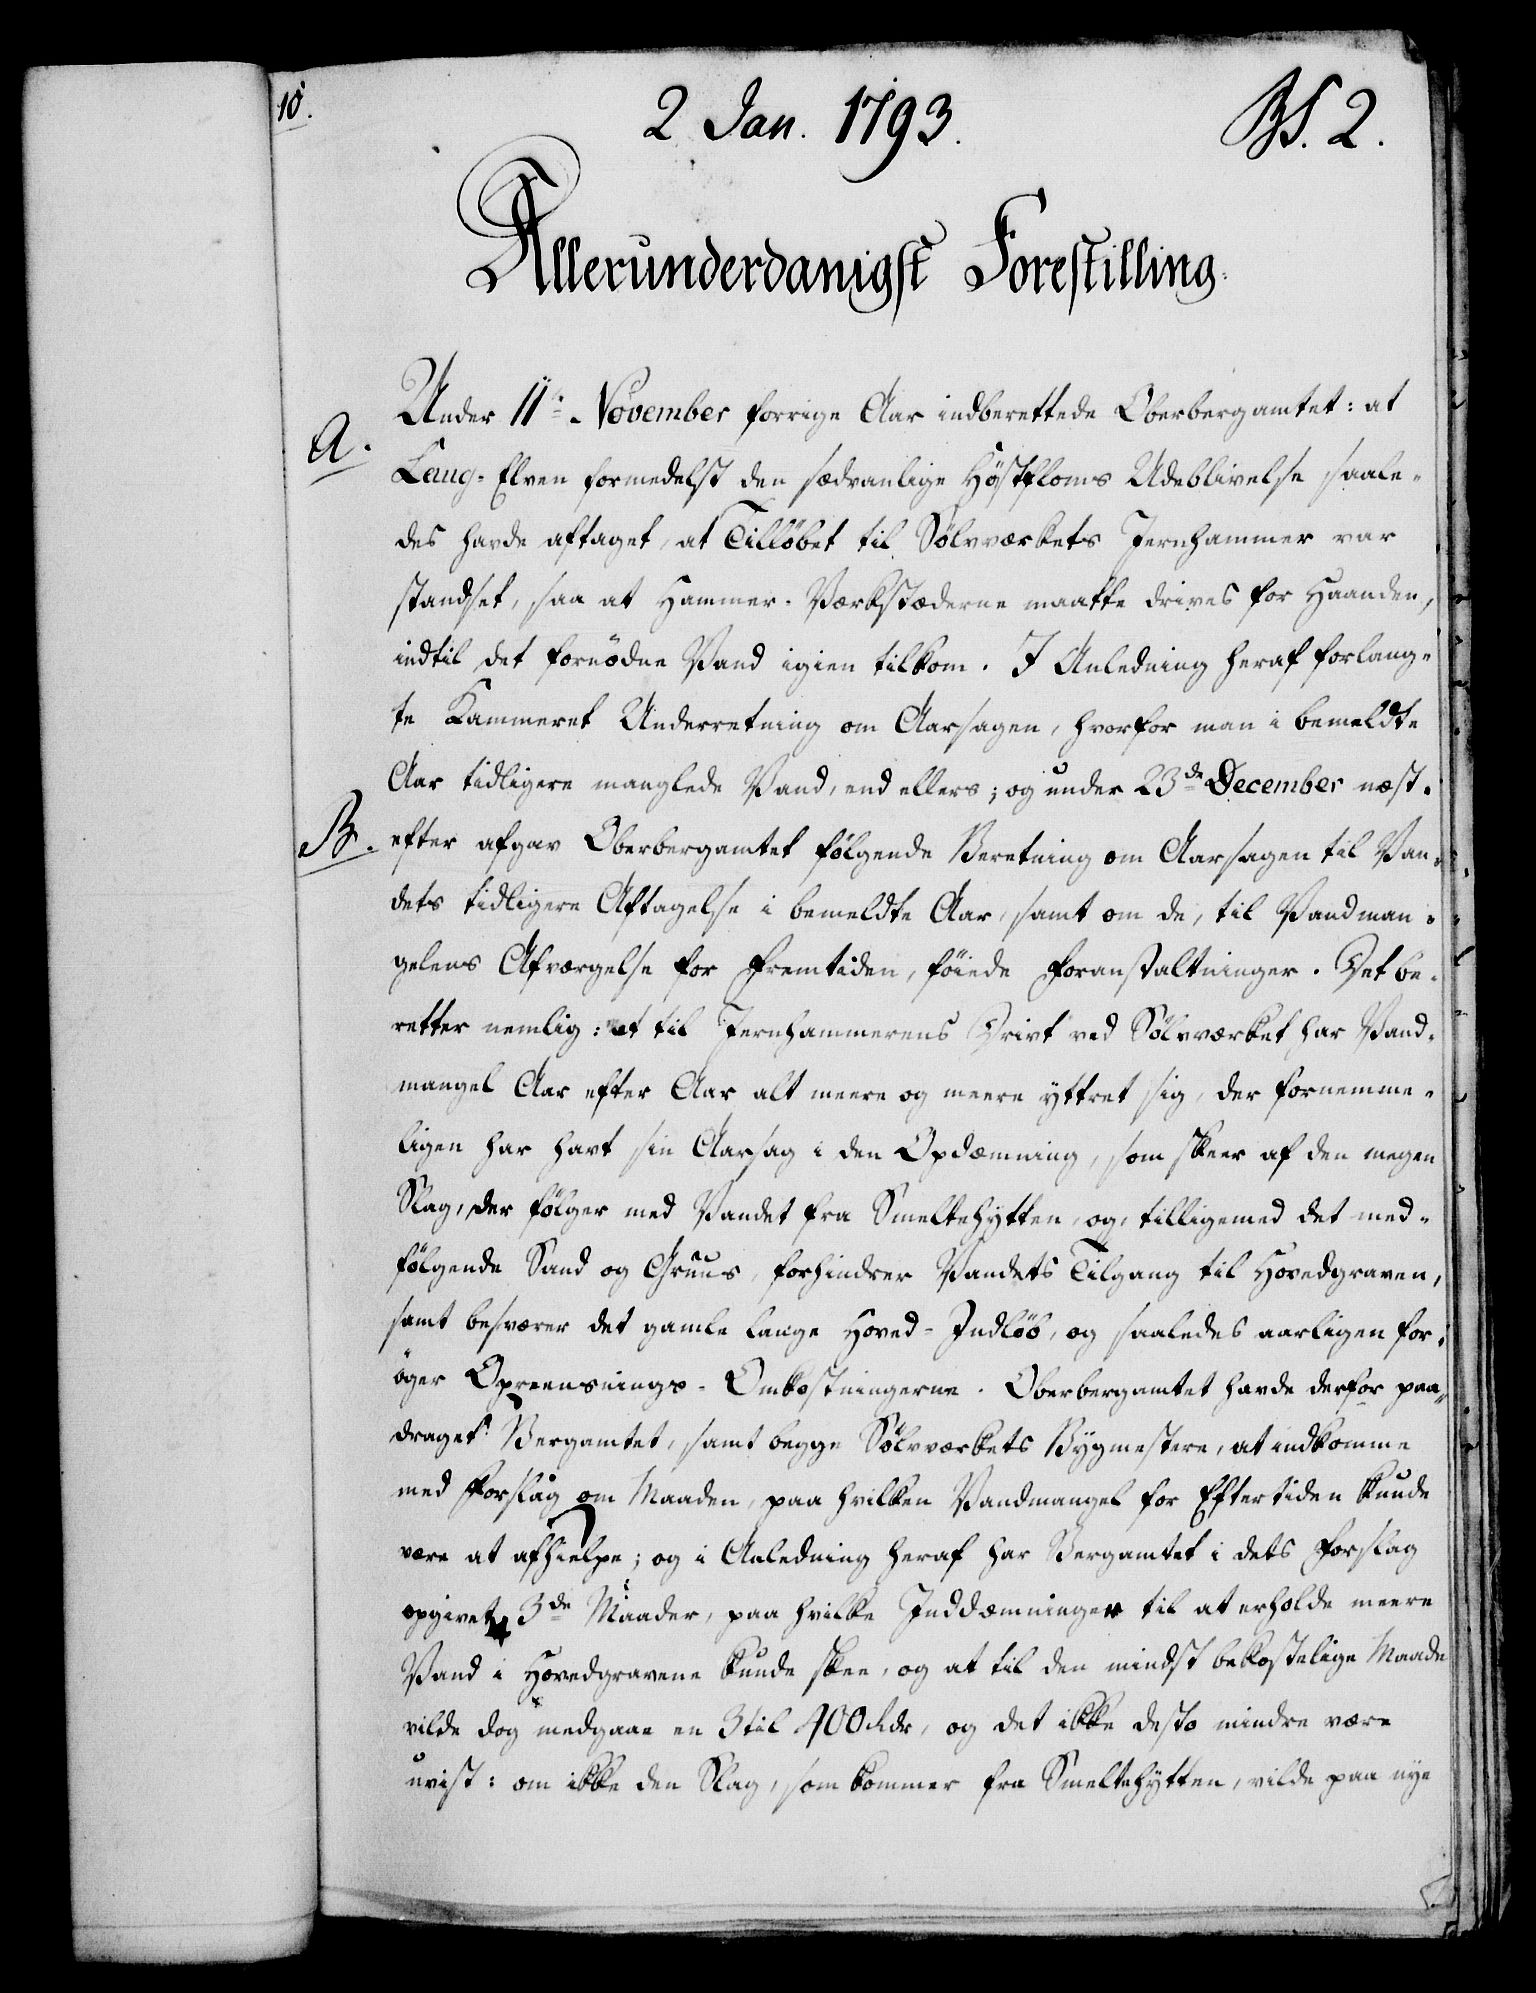 10.
2 Jan. 1793.
BS. 2.
Allerunderdanigst Forestilling.
Under 11te November forrige Aar indberettede Oberbergamtet: at
A.
Laug-Elven formedelst den sædvanlige Höstfloms Udeblivelse saale-
des havde aftaget, at Tillöbet til Sölvværkets Jernhammer var
standset, saa at Hammer-Værkstæderne maatte drives for Haanden,
indtil det fornödne Vand igien tilkom. I Anledning heraf forlang-
te Kammeret Underretning om Aarsagen, hvorfor man i bemeldte
Aar tidligere manglede Vand, end ellers; og under 23de December næst-
B.
efter afgav Oberbergamtet fölgende Beretning om Aarsagen til Van-
dets tidligere Aftagelse i bemeldte Aar, samt om de, til Vandman-
gelens Afværgelse for Fremtiden, föiede Foranstaltninger. Det be-
retter nemlig: at til Jernhammerens Drivt ved Sölvværket har Vand-
mangel Aar efter Aar alt meere og meere yttret sig, der fornemme-
ligen har havt sin Aarsag i den Opdæmning, som skeer af den megen
Slag, der fölger med Vandet fra Smeltehytten, og, tilligemed det med-
fölgende Sand og Gruus, forhindrer Vandets Tilgang til Hovedgraven,
samt besværer det gamle lange Hoved-Indlöb, og saaledes aarligen for-
öger Oprensnings-Omkostningerne. Oberbergamtet havde derfor paa-
draget Bergamtet, samt begge Sölvværkets Bygmestere, at indkomme
med Forslag om Maaden, paa hvilken Vandmangel for Eftertiden kunde
være at afhielpe; og i Anledning heraf har Bergamtet i dets Forslag
opgivet 3de Maader, paa hvilke Inddæmninger til at erholde meere
Vand i Hovedgravene kunde skee, og at til den mindst bekostelige Maade
vilde dog medgaae en 3 til 400 Rdr, og det ikke desto mindre være
uvist: om ikke den Slag, som kommer fra Smeltehytten, vilde paa nye